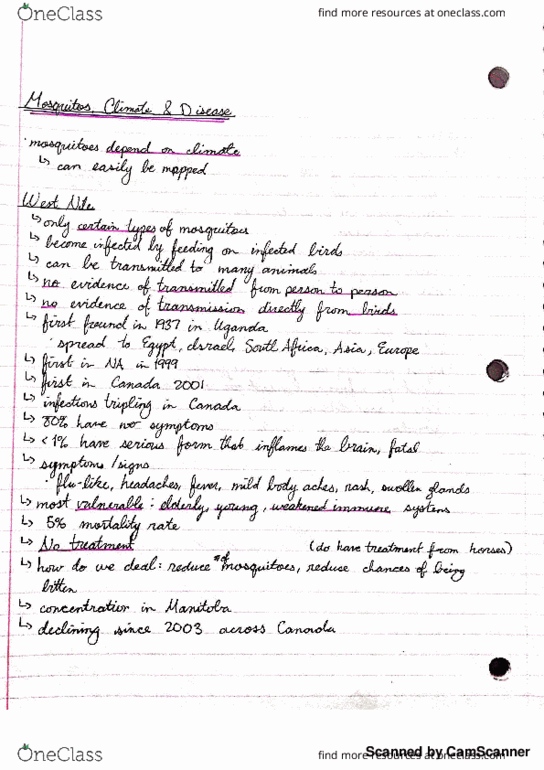 OneClass
find more resources at oneclass.com
Mosquitos, Climate & Disease
· mosquitoes depend on climate
↳ can easily be mapped
West Nile
↳ only certain types of mosquitous
↳ become infected by feeding on infected birds
↳ can be transmitted to many animals
↳ no evidence of transmitted from person to person
↳ no evidence of transmission directly from birds
↳ first found in 1937 in Uganda
· spread to Egypt, Israel, South Africa, Asia, Europe
↳ first in NA in 1999
↳ first in Canada 2001
↳ infections tripling in Canada
↳ 80% have no symptoms
↳ <1% have serious form that inflames the brain, fatal
↳ symptoms/signs
· flu-like, headaches, fever, mild body aches, rash, swollen glands
↳ most vulnerable: elderly, young, weakened immune systems
↳ 5% mortality rate
↳ No treatment (do have treatment from horses)
↳ how do we deal: reduce # of mosquitoes, reduce chances of being
bitten
↳ concentration in Manitoba
↳ declining since 2003 across Canada
OneClass
find more resources at oneclass.com
Scanned by CamScanner